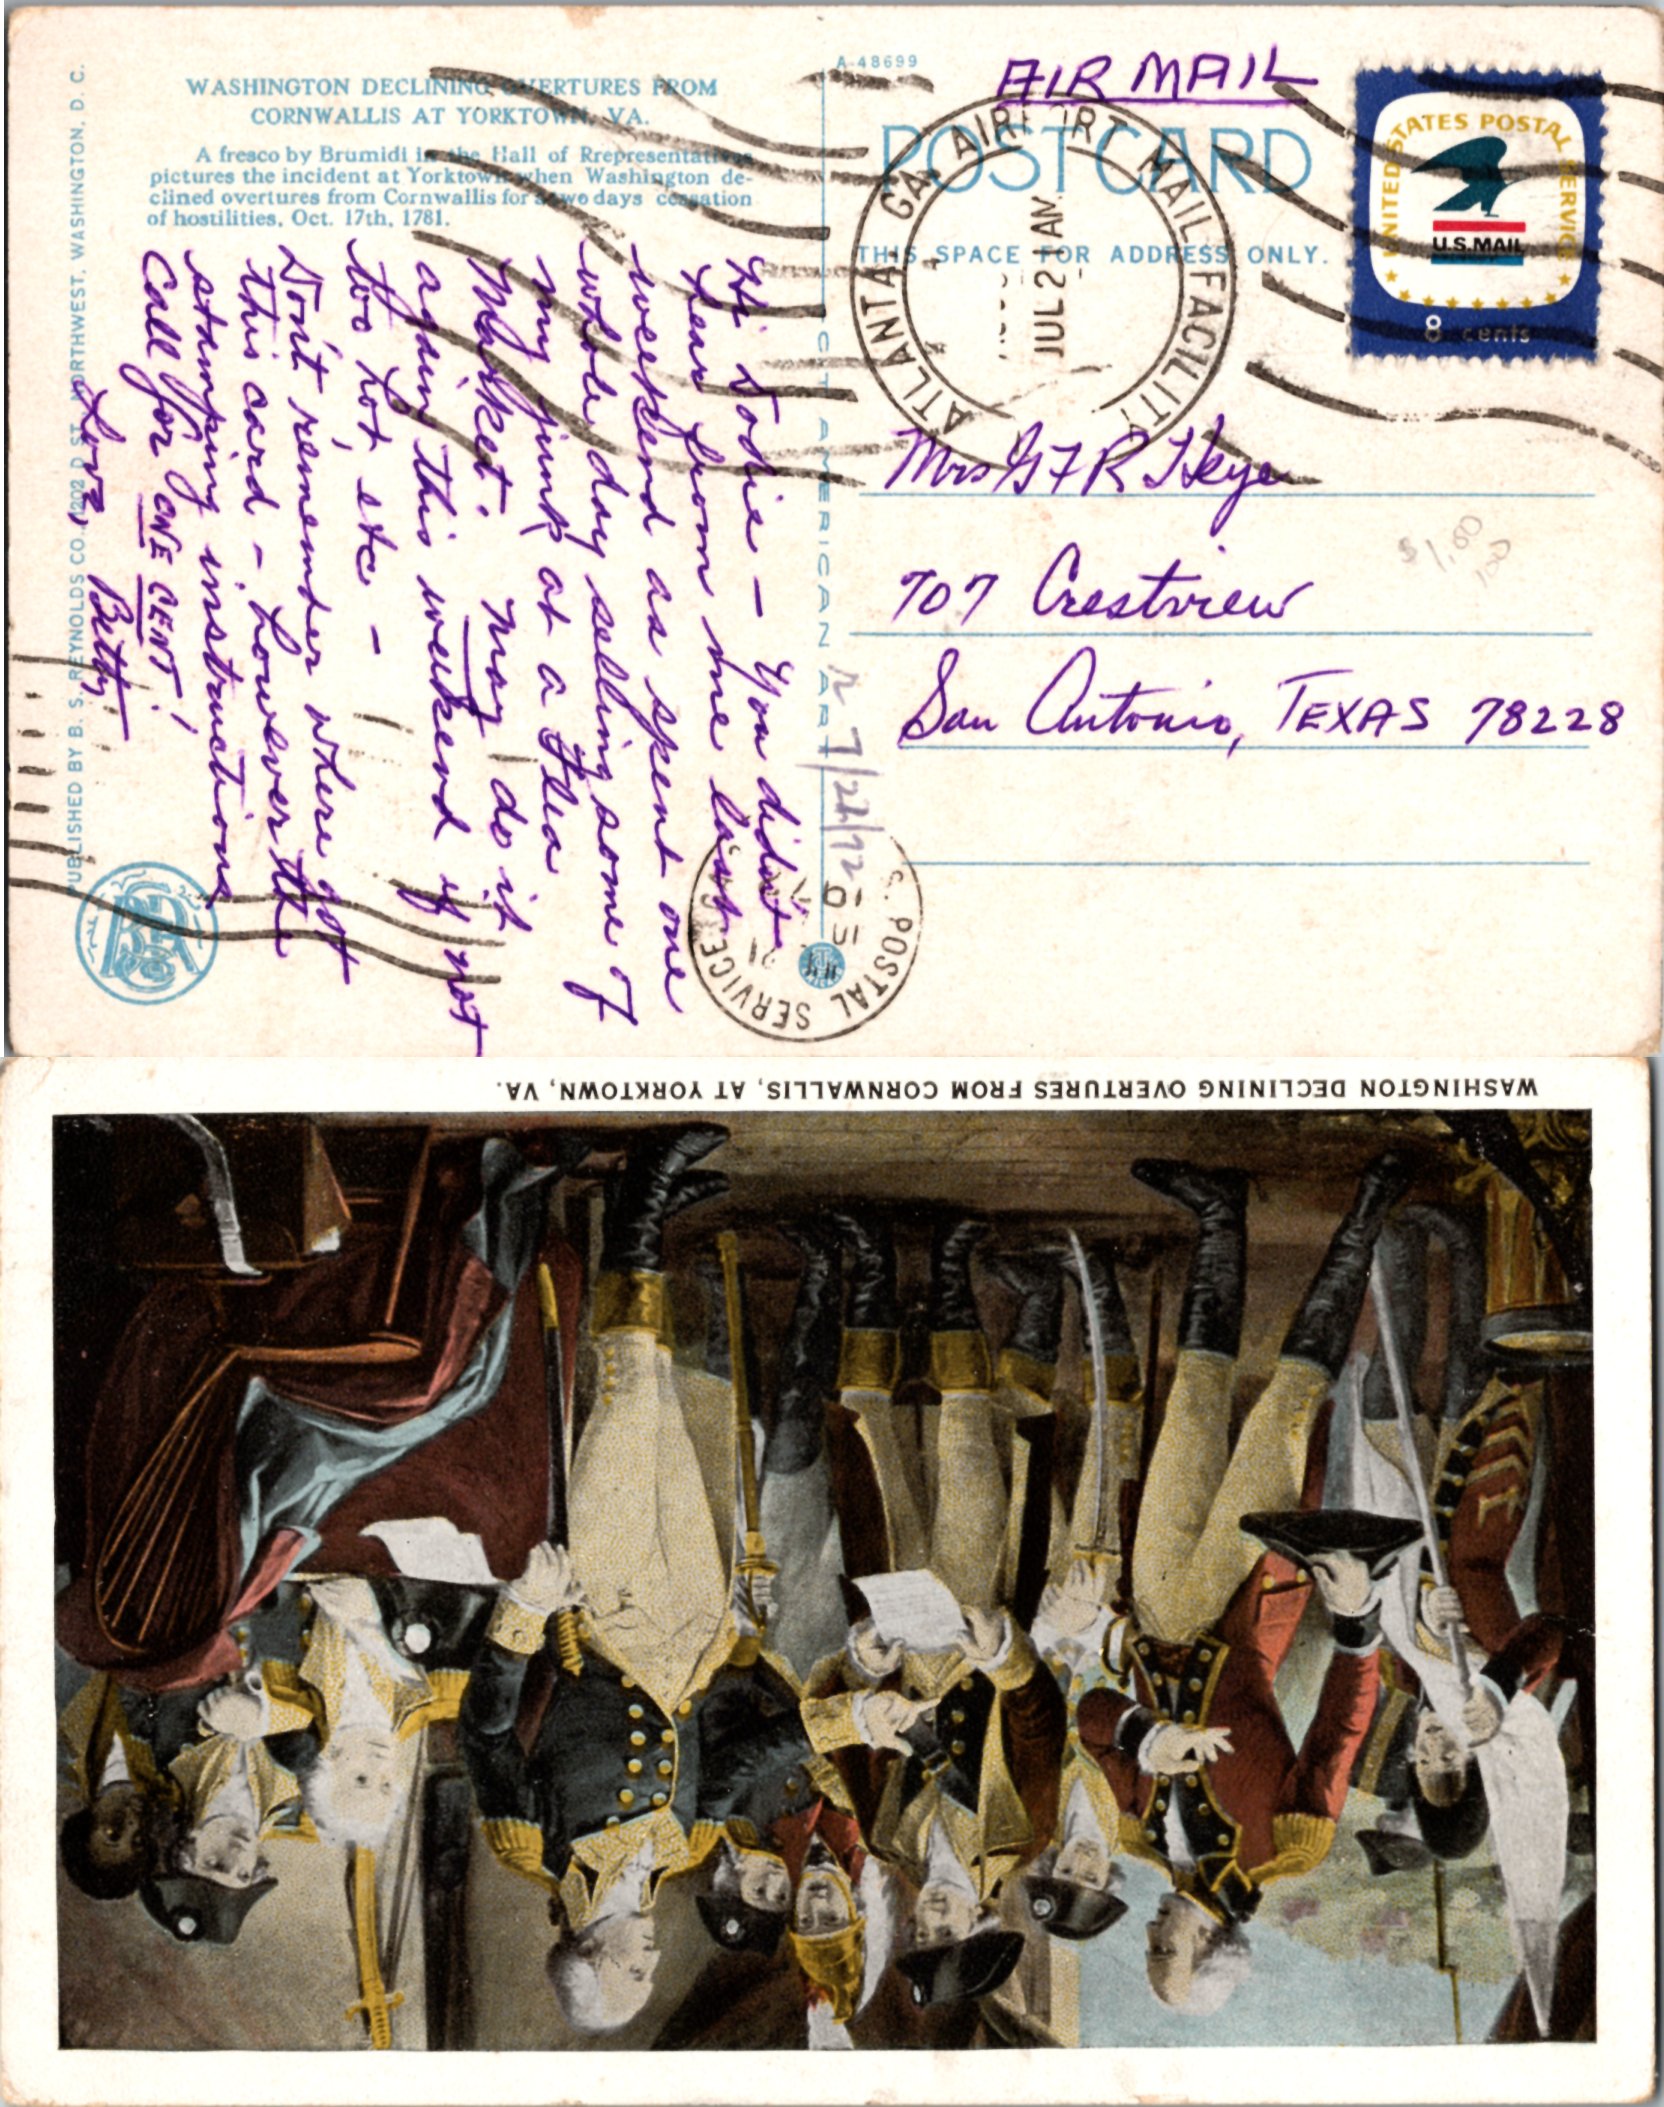 WASHINGTON DECLINING OVERTURES FROM
CORNWALLIS AT YORKTOWN, VA.
A fresco by Brumidi in the Hall of Rrepresentatives
pictures the incident at Yorktown when Washington de-
clined overtures from Cornwallis for a two days cessation
of hostilities, Oct. 17th, 1781.
PUBLISHED BY B. S. REYNOLDS CO., 1202 D ST. NORTHWEST, WASHINGTON, D. C.
Hi Dodie — You didn't
hear from me last
weekend as spent one
whole day selling some of
my junk at a Flea
Market. May do it
again this weekend if not
too hot, etc —
Don't remember where got
this card - however the
stamping instructions
call for ONE CENT!
Love, Betty
A-48699
AIR MAIL
POST CARD
THIS SPACE FOR ADDRESS ONLY.
AMERICAN ART
ATLANTA GA. AIRPORT MAIL FACILITY
JUL 21 AM
UNITED STATES POSTAL SERVICE
U.S.MAIL
8 cents
Mrs G F R Heye
707 Crestview
San Antonio, TEXAS 78228
$1.00
100
7/24/72
POSTAL SERVICE
21
WASHINGTON DECLINING OVERTURES FROM CORNWALLIS, AT YORKTOWN, VA.